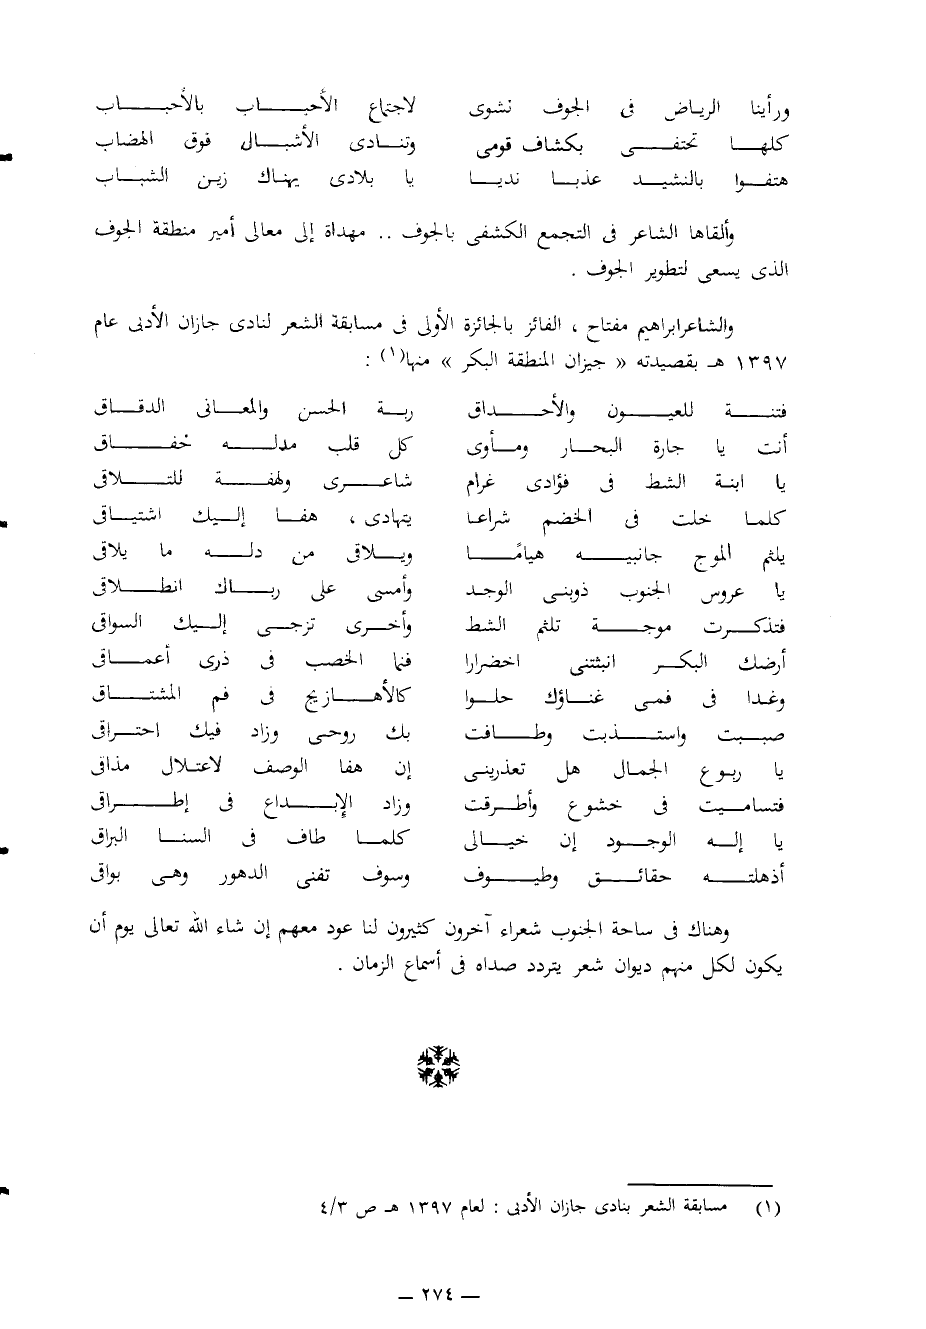 ورأينا الرياض فى الجوف نشوى لاجتماع الأحباب بالأحباب
كلها تحتفى بكشاف قومى وتنادى الأشبال فوق الهضاب
هتفوا بالنشيد عذبا نديا يا بلادى يهناك زين الشباب
وألقاها الشاعر فى التجمع الكشفى بالجوف .. مهداة إلى معالى أمير منطقة الجوف
الذى يسعى لتطوير الجوف .
والشاعرابراهيم مفتاح ، الفائز بالجائزة الأولى فى مسابقة الشعر لنادى جازان الأدبى عام
١٣٩٧ هـ بقصيدته « جيزان المنطقة البكر » منها(١) :
فتنة للعيون والأحداق ربة الحسن والمعانى الدقاق
أنت يا جارة البحار ومأوى كل قلب مدله خفاق
يا ابنة الشط فى فؤادى غرام شاعرى ولهفة للتلاقى
كلما خلت فى الخضم شراعا يتهادى ، هفا إليك اشتياق
يلثم الموج جانبيه هياما ويلاقى من دله ما يلاقى
يا عروس الجنوب ذوبنى الوجد وأمسى على رباك انطلاقى
فتذكرت موجة تلثم الشط وأخرى تزجى إليك السواقى
أرضك البكر انبثنى اخضرارا فنما الخصب فى ذرى أعماقى
وغدا فى فمى غناؤك حلوا كالأهازيج فى فم المشتاق
صببت واستذبت وطافت بك روحى وزاد فيك احتراقى
يا ربوع الجمال هل تعذرينى إن هفا الوصف لاعتلال مذاقى
فتساميت فى خشوع وأطرقت وزاد الإبداع فى إطراقى
يا إله الوجود إن خيالى كلما طاف فى السنا البراق
أذهلته حقائق وطيوف وسوف تفنى الدهور وهى بواقى
وهناك فى ساحة الجنوب شعراء آخرون كثيرون لنا عود معهم إن شاء الله تعالى يوم أن
يكون لكل منهم ديوان شعر يتردد صداه فى أسماع الزمان .
(١) مسابقة الشعر بنادى جازان الأدبى : لعام ١٣٩٧ هـ ص ٤/٣
— ٢٧٤ —